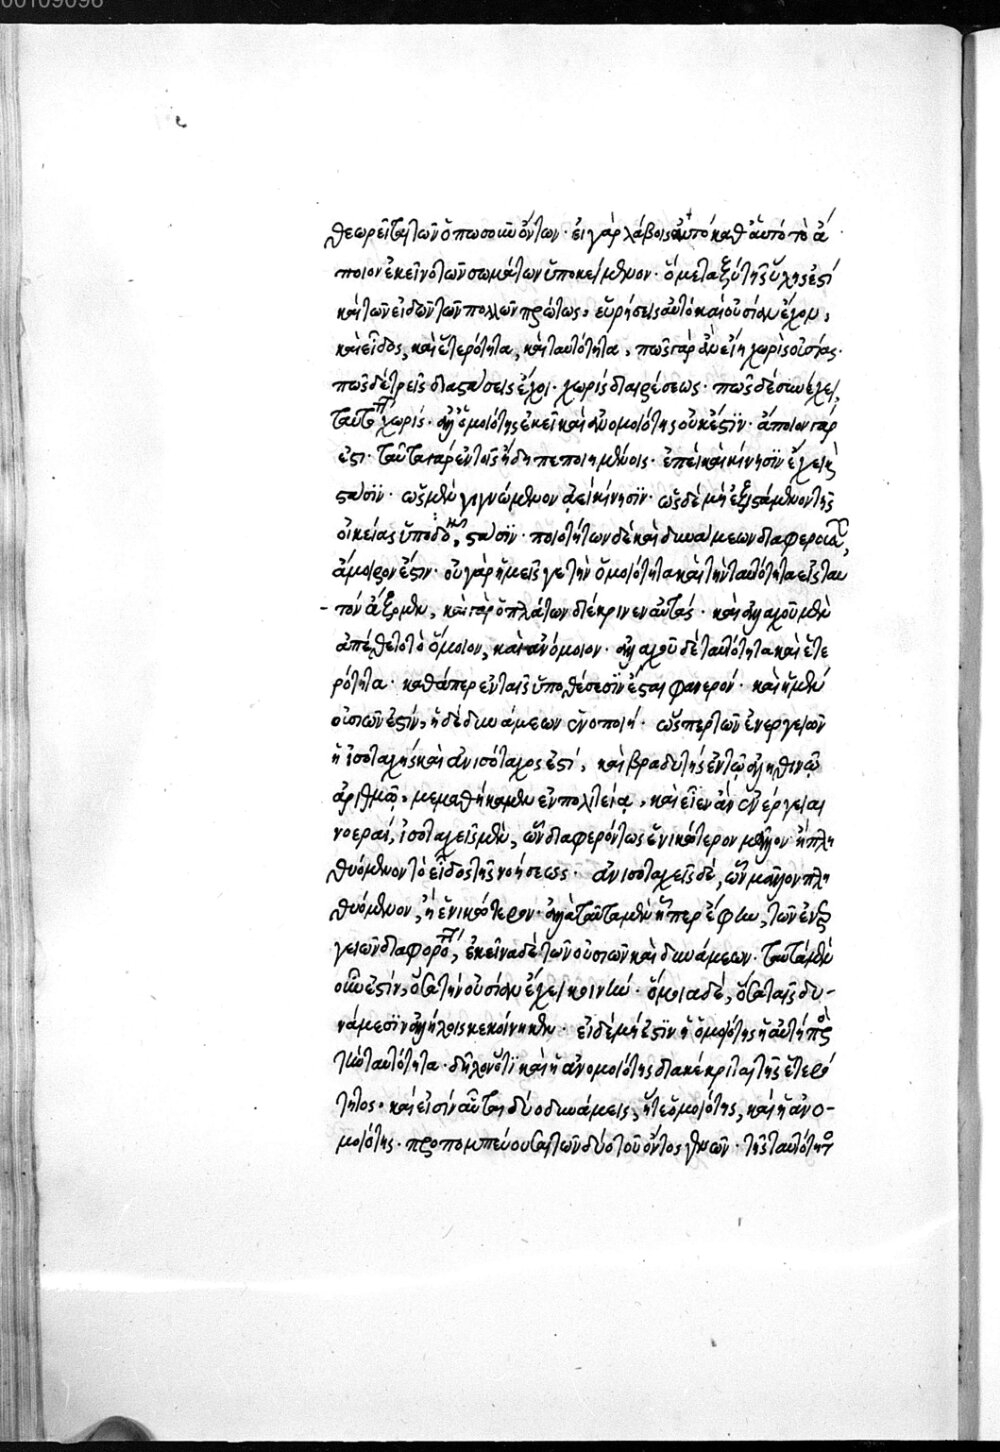 00109098
θεωρεῖται τῶν ὁπωσοῦν ὄντων· εἰ γὰρ λάβοις αὐτὸ καθ' αὑτὸ τὸ ἄ
ποιον ἐκεῖνο τῶν σωμάτων ὑποκείμενον· ὃ μεταξὺ τῆς ὕλης ἐστὶ
καὶ τῶν εἰδῶν τῶν πολλῶν πρώτως, εὑρήσεις αὐτὸ καὶ οὐσίαν ἔχον,
καὶ εἶδος, καὶ ἑτερότητα, καὶ ταυτότητα, πῶς γὰρ ἂν εἴη χωρὶς οὐσίας·
πῶς δὲ τρεῖς διαστάσεις ἔχοι· χωρὶς διαιρέσεως· πῶς δὲ συνέχει,
ταυτότητος χωρίς· ἀλλ' ὁμοιότης ἐκεῖ καὶ ἀνομοιότης οὐκ ἔστιν· ἄποιον γάρ
ἐστι· ταῦτα γὰρ ἐν τοῖς ἤδη πεποιημένοις· ἐπεὶ καὶ κίνησιν ἔχει καὶ
στάσιν· ὡς μὲν γιγνόμενον ἀεὶ κίνησιν· ὡς δὲ μὴ ἐξιστάμενον τῆς
οἰκείας ὑποδοχῆς, στάσιν· ποιοτήτων δὲ καὶ δυνάμεων διαφερουσῶν,
ἄμοιρον ἐστίν· οὐ γὰρ ἡμεῖς γε τὴν ὁμοιότητα καὶ τὴν ταυτότητα εἰς ταυ
τὸν ἄξομεν, καὶ γὰρ ὁ πλάτων διέκρινεν αὐτάς· καὶ ἀλλαχοῦ μὲν
ἀπέθετο τὸ ὅμοιον, καὶ ἀνόμοιον· ἀλλαχοῦ δὲ ταυτότητα καὶ ἑτε
ρότητα· καθάπερ ἐν ταῖς ὑποθέσεσιν ἔσται φανερόν· καὶ ἡ μὲν
οὐσιῶν ἐστίν, ἡ δὲ δυνάμεων ἑνοποιή· ὥσπερ τῶν ἐνεργειῶν
ἡ ἰσοταχὴς καὶ ἀνισόταχος ἐστί, καὶ βραδυτὴς ἐν τῷ ἀληθινῷ
ἀριθμῷ, μεμαθήκαμεν ἐν πολιτείᾳ, καὶ εἶεν ἂν ἐνέργειαι
νοεραί, ἰσοταχεῖς μὲν, ὧν διαφερόντως ἑνικώτερον μᾶλλον ἢ πλη
θυόμενον τὸ εἶδος τῆς νοήσεως· ἀνισοταχεῖς δὲ, ὧν μᾶλλον πλη
θυόμενον, ἢ ἑνικώτερον· ἀλλὰ ταῦτα μὲν ὥσπερ ἔφην, τῶν ἐνερ
γειῶν διαφορότητι, ἐκεῖνα δὲ τῶν οὐσιῶν καὶ δυνάμεων· ταυτὰ μὲν
οὖν ἐστίν, ὅσα τὴν οὐσίαν ἔχει κοινήν· ὅμοια δὲ, ὅσα ταῖς δυ-
νάμεσιν ἀλλήλοις κεκοίνηκεν· εἰ δὲ μή ἐστιν ἡ ὁμοιότης ἡ αὐτὴ πρὸς
τὴν ταυτότητα· δῆλον ὅτι καὶ ἡ ἀνομοιότης διακέκριται τῆς ἑτερό
τητος· καὶ εἰσὶν αὗται δύο δυνάμεις, ἥτε ὁμοιότης, καὶ ἡ ἀνο-
μοιότης· προπομπεύουσαι τῶν δύο τοῦ ὄντος γενῶν· τῆς ταυτότητος